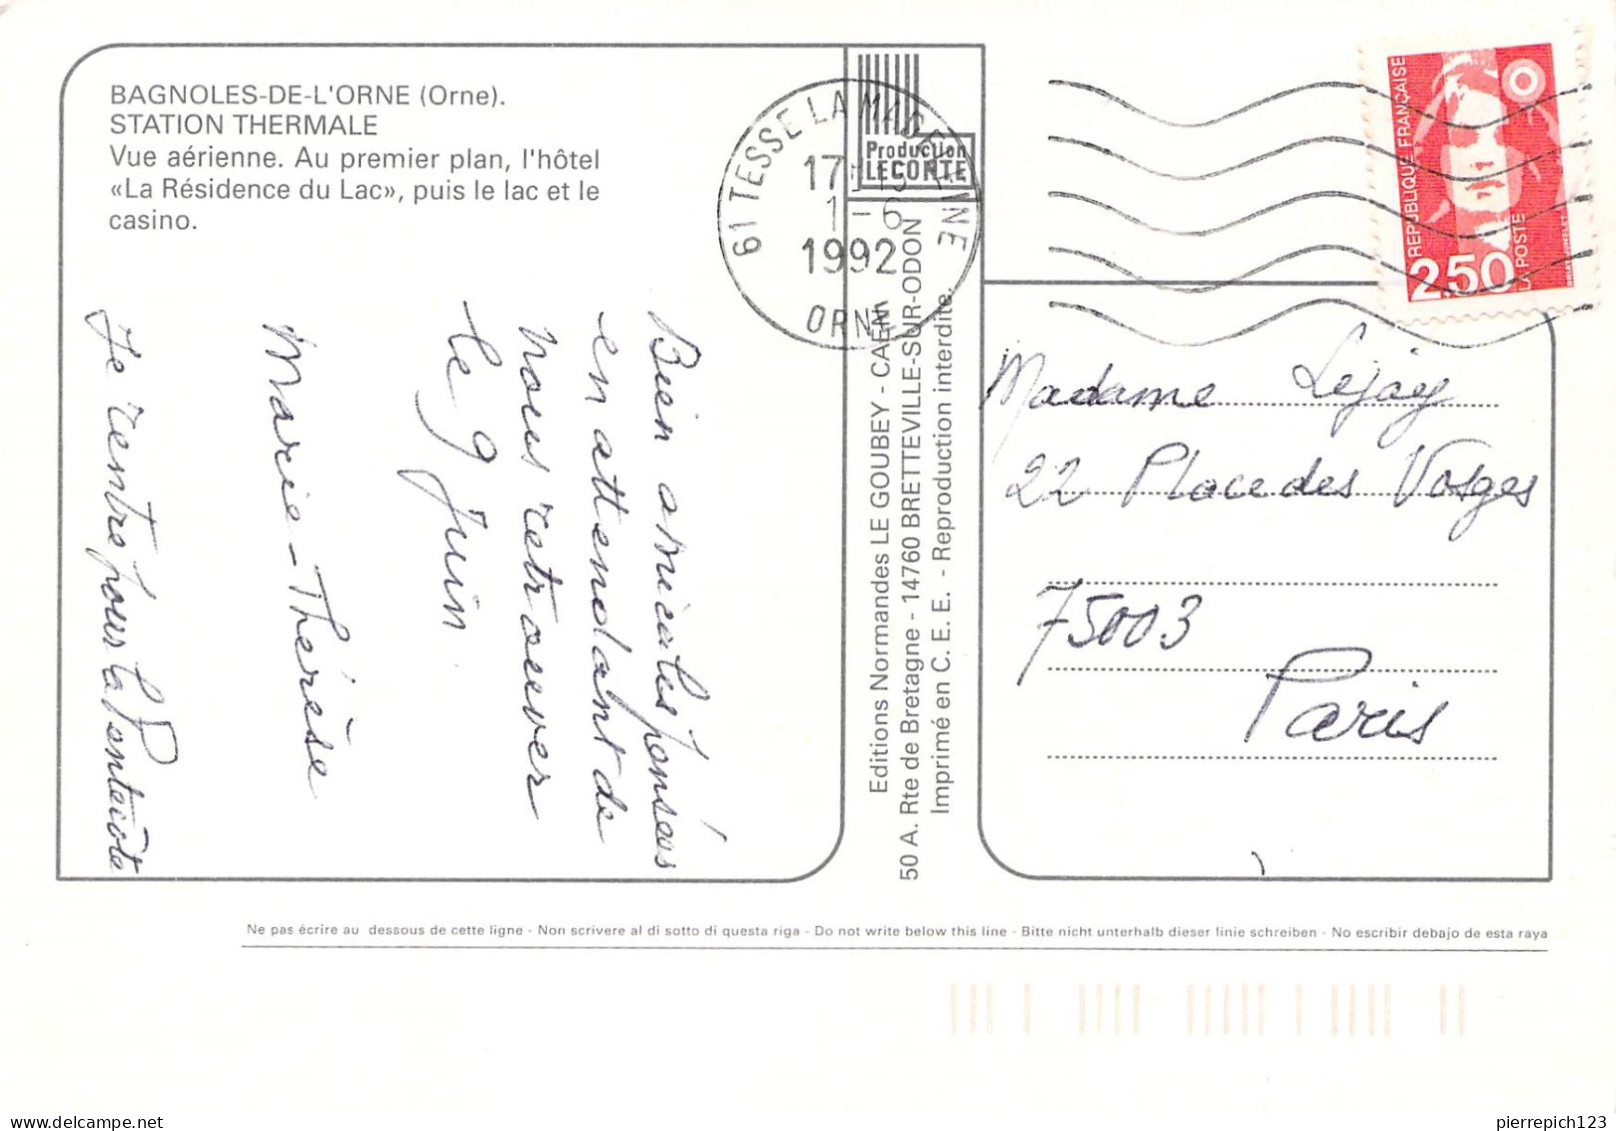 BAGNOLES-DE-L'ORNE (Orne).
STATION THERMALE
Vue aérienne. Au premier plan, l'hôtel
«La Résidence du Lac», puis le lac et le
casino.
Bien amicales pensées
en attendant de
nous retrouver
le 9 Juin.
Marie-Thérèse
Je rentre pour la Pentecôte
Production
LECONTE
61 TESSE LA MADELEINE
17H15
1-6
1992
ORNE
Editions Normandes LE GOUBEY - CAEN
50 A. Rte de Bretagne - 14760 BRETTEVILLE-SUR-ODON
Imprimé en C. E. E. - Reproduction interdite.
REPUBLIQUE FRANÇAISE
LA POSTE
2,50
Madame Lejay
22 Place des Vosges
75003
Paris
Ne pas écrire au dessous de cette ligne - Non scrivere al di sotto di questa riga - Do not write below this line - Bitte nicht unterhalb dieser linie schreiben - No escribir debajo de esta raya
pierrepich123